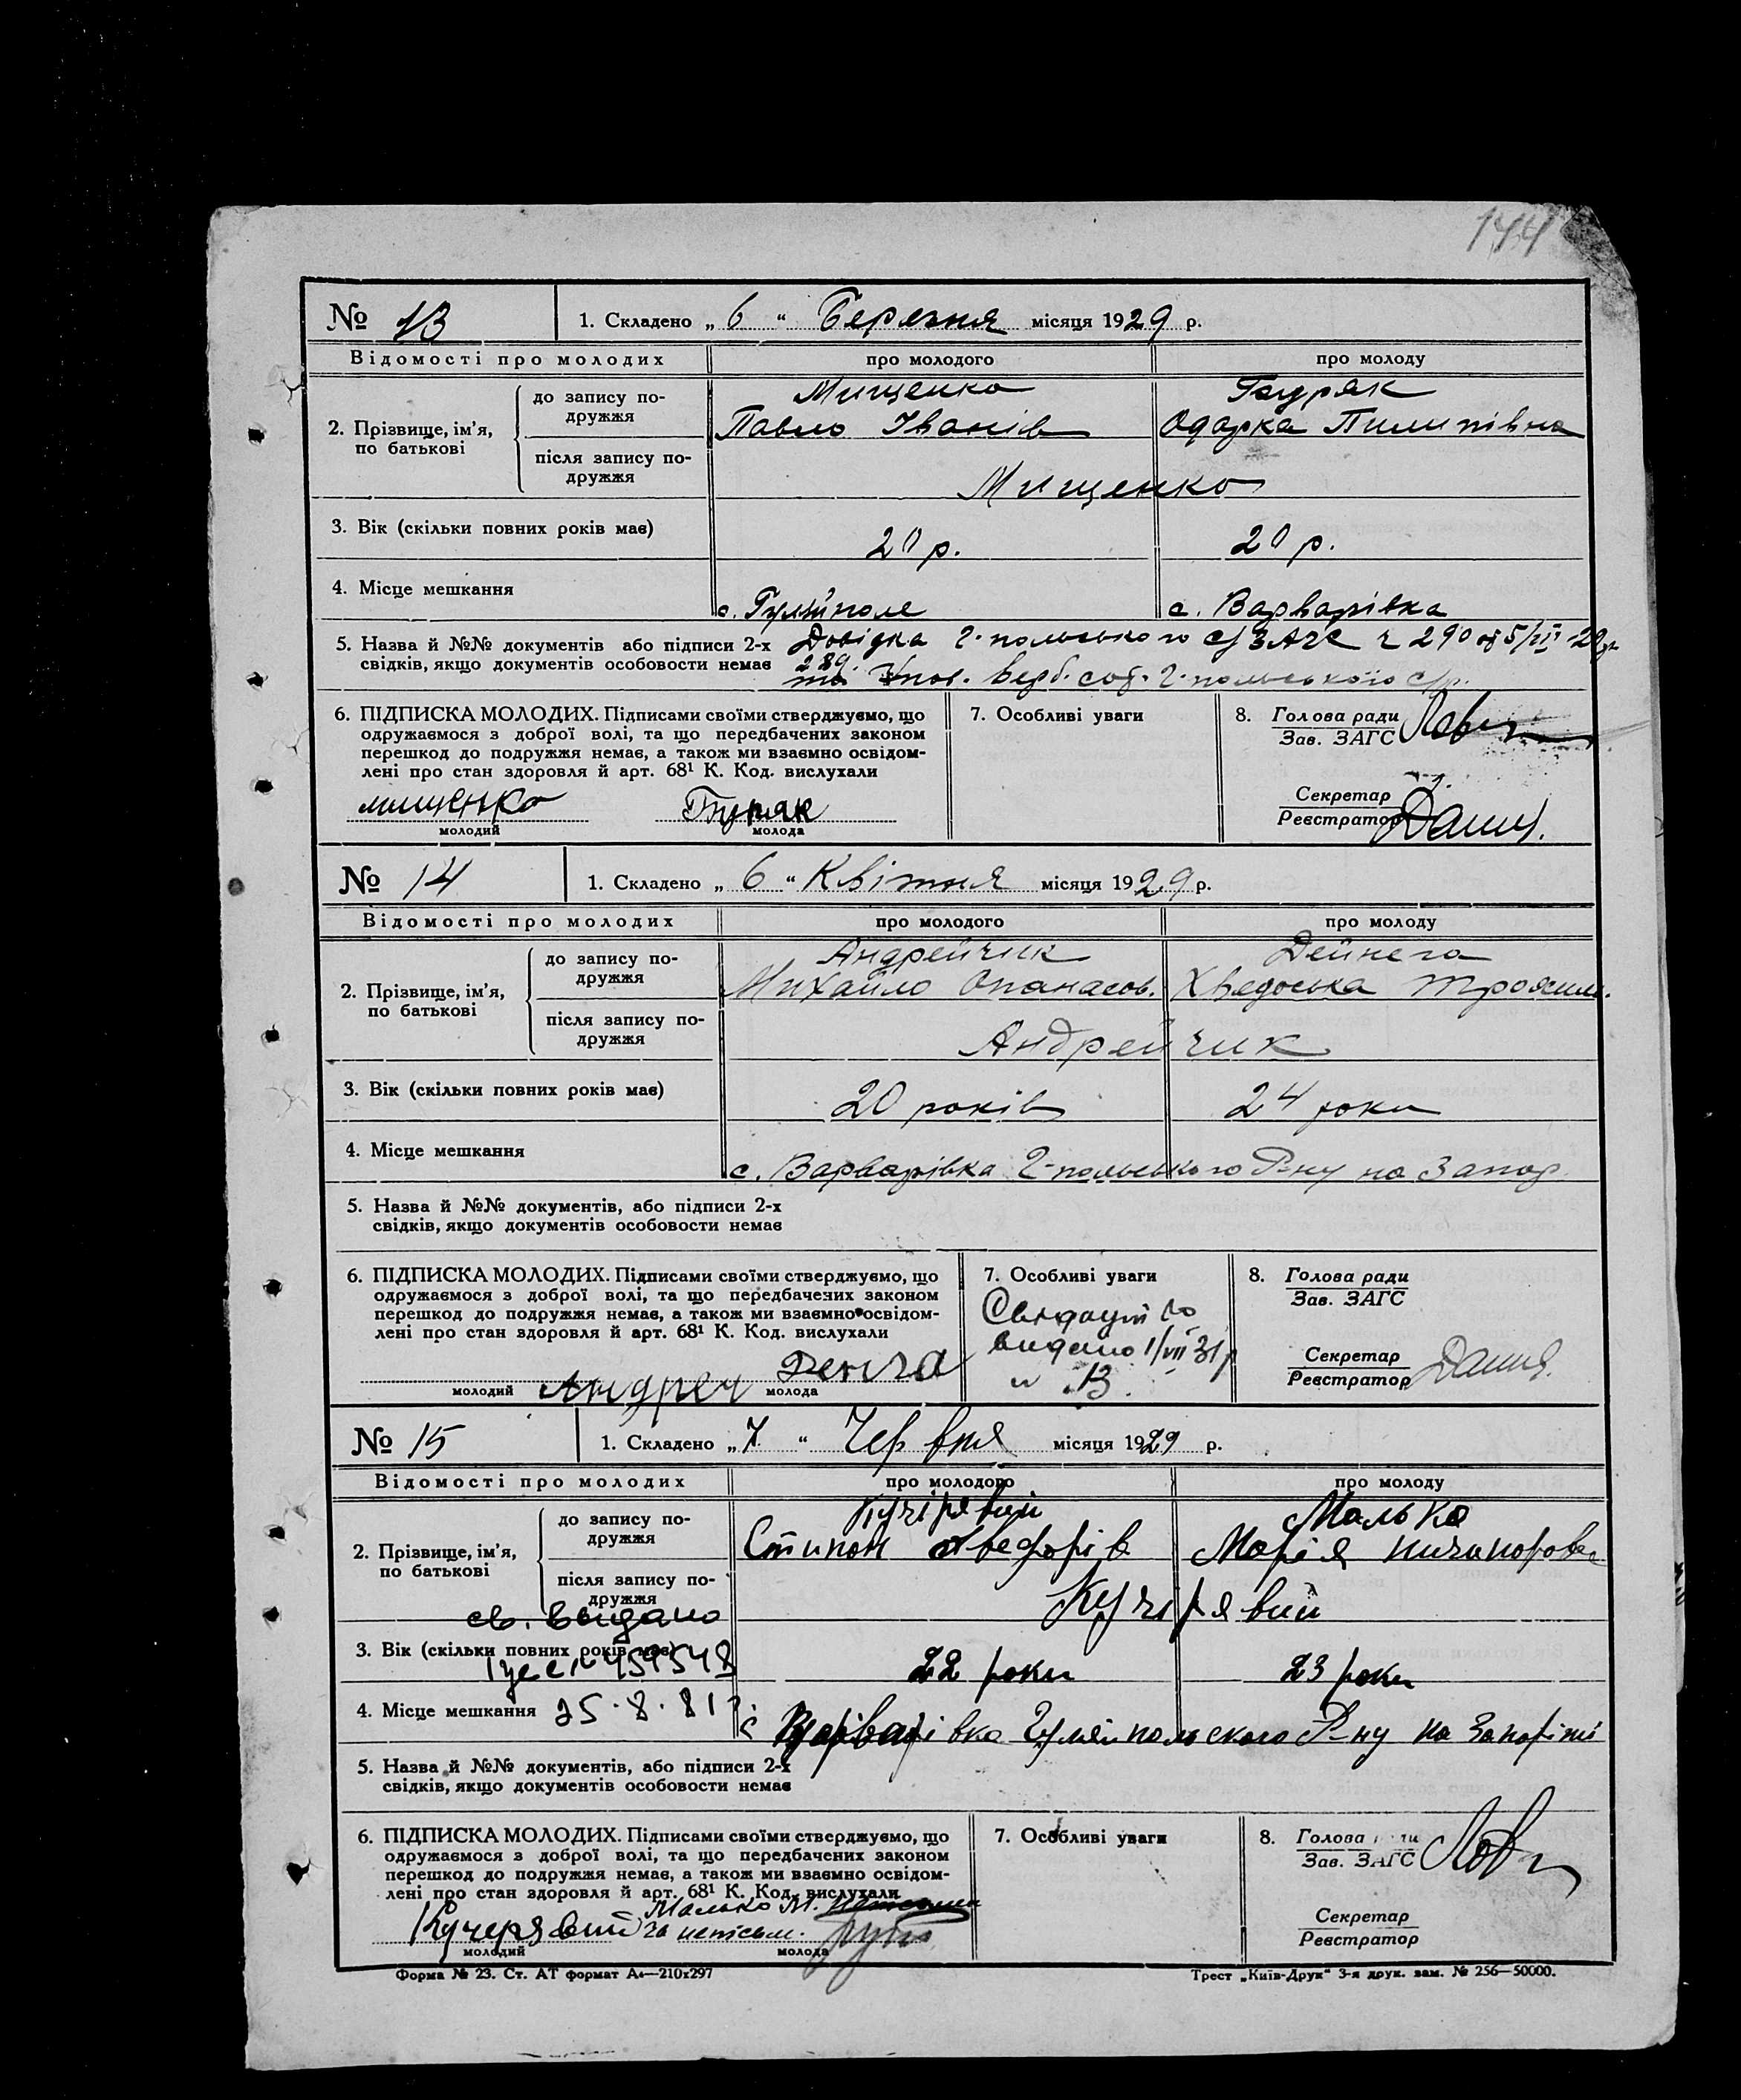 144
№ 13 1. Складено „ 6 “ Березня місяця 1929 р.
Відомості про молодих про молодого про молоду
2. Прізвище, ім’я, по батькові
до запису подружжя
Мищенко
Павло Іванів
Буряк
Одарка Пилипівна
після запису подружжя
Мищенко
3. Вік (скільки повних років має) 20 р. 20 р.
4. Місце мешкання с. Гуляйполе с. Варварівка
5. Назва й №№ документів або підписи 2-х Довідка Г-польського с/ЗАГС ч 290 від 5/III-29 р.
свідків, якщо документів особовости немає 289. Г-польського с/р.
6. ПІДПИСКА МОЛОДИХ. Підписами своїми стверджуємо, що
одружаємося з доброї волі, та що передбачених законом
перешкод до подружжя немає, а також ми взаємно освідом-
лені про стан здоровля й арт. 68¹ К. Код. вислухали
мищенко Буряк
молодий молода
7. Особливі уваги
8. Голова ради
Зав. ЗАГС
Секретар
Реєстратор
№ 14 1. Складено „ 6 “ Квітня місяця 1929 р.
Відомості про молодих про молодого про молоду
2. Прізвище, ім’я, по батькові
до запису подружжя
Андрейчик
Михайло Опанасов.
Дейнега
Хведоська
після запису подружжя
Андрейчик
3. Вік (скільки повних років має) 20 років 24 роки
4. Місце мешкання с. Варварівка Г-польського Р-ну на Запор.
5. Назва й №№ документів, або підписи 2-х
свідків, якщо документів особовости немає
6. ПІДПИСКА МОЛОДИХ. Підписами своїми стверджуємо, що
одружаємося з доброї волі, та що передбачених законом
перешкод до подружжя немає, а також ми взаємно освідом-
лені про стан здоровля й арт. 68¹ К. Код. вислухали
Андреч
молодий молода
7. Особливі уваги
видано 1/VII 31 р
8. Голова ради
Зав. ЗАГС
Секретар
Реєстратор
№ 15 1. Складено „ 7 “ Червня місяця 1929 р.
Відомості про молодих про молодого про молоду
2. Прізвище, ім’я, по батькові
до запису подружжя
Кучірявий
Стипан Хведорів
Малько
Марія
після запису подружжя
Кучірявий
св. выдано
3. Вік (скільки повних років має) 22 роки 23 роки
459548
4. Місце мешкання 25.8.81 г.
с Варварівка Гуляйпольского Р-ну на Запоріжі
5. Назва й №№ документів, або підписи 2-х
свідків, якщо документів особовости немає
6. ПІДПИСКА МОЛОДИХ. Підписами своїми стверджуємо, що
одружаємося з доброї волі, та що передбачених законом
перешкод до подружжя немає, а також ми взаємно освідом-
лені про стан здоровля й арт. 68¹ К. Код. вислухали
Малько М.
Кучерявий за неписьм.
молодий молода
7. Особливі уваги
8. Голова ради
Зав. ЗАГС
Секретар
Реєстратор
Форма № 23. Ст. АТ формат А₄—210х297 Трест „Київ-Друк“ 3-я друк. зам. № 256—50000.